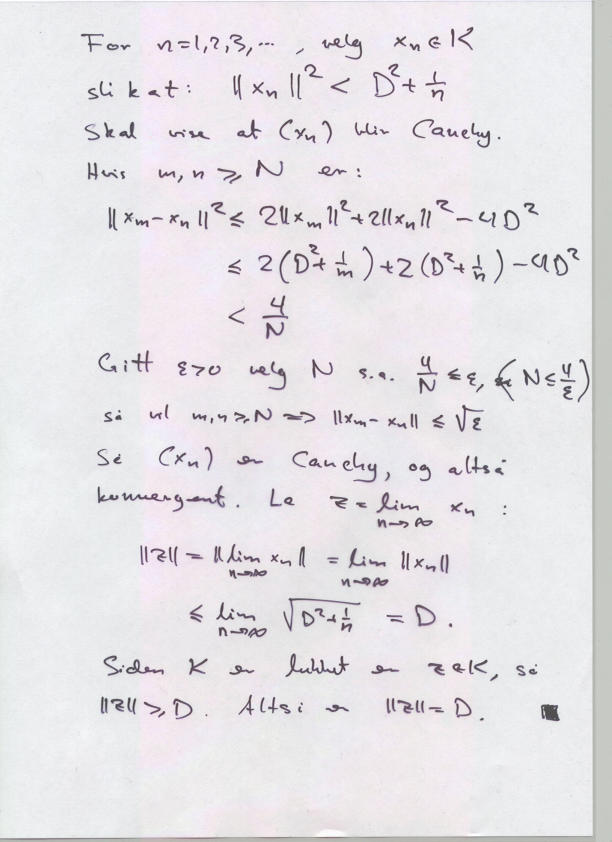 For n=1,2,3,..., velg xₙ ∈ K
slik at: ||xₙ||² < D² + 1/n
Skal vise at (xₙ) blir Cauchy.
Hvis m, n ≥ N er:
||xₘ - xₙ||² ≤ 2||xₘ||² + 2||xₙ||² - 4D²
≤ 2(D² + 1/m) + 2(D² + 1/n) - 4D²
< 4/N
Gitt ε>0 velg N s.a. 4/N ≤ ε, (N ≤ 4/ε)
så vil m,n ≥ N => ||xₘ - xₙ|| ≤ √ε
Så (xₙ) er Cauchy, og altså
konvergent. La z = lim n→∞ xₙ :
||z|| = ||lim n→∞ xₙ|| = lim n→∞ ||xₙ||
≤ lim n→∞ √(D² + 1/n) = D.
Siden K er lukket er z ∈ K, så
||z|| ≥ D. Altså er ||z|| = D. ■